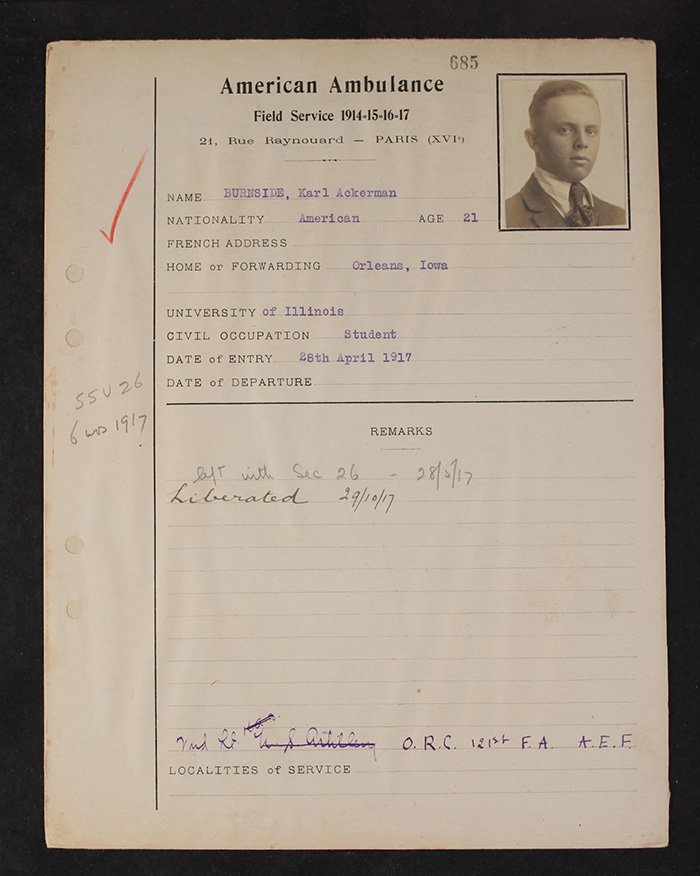 685
American Ambulance
Field Service 1914-15-16-17
21, Rue Raynouard — PARIS (XVIe)
NAME BURNSIDE, Karl Ackerman
NATIONALITY American AGE 21
FRENCH ADDRESS
HOME or FORWARDING Orleans, Iowa
UNIVERSITY of Illinois
CIVIL OCCUPATION Student
DATE of ENTRY 28th April 1917
DATE of DEPARTURE
SSU 26
6 mos 1917
REMARKS
left with Sec 26 - 28/5/17
Liberated 29/10/17
2nd Lt. U.S. Artillery O.R.C. 121st F.A. A.E.F.
LOCALITIES of SERVICE